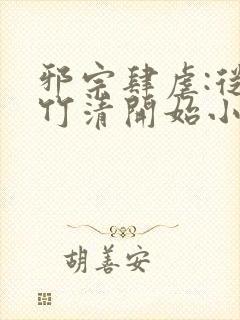 邪宗肆虐:從
竹清開始小
胡善安